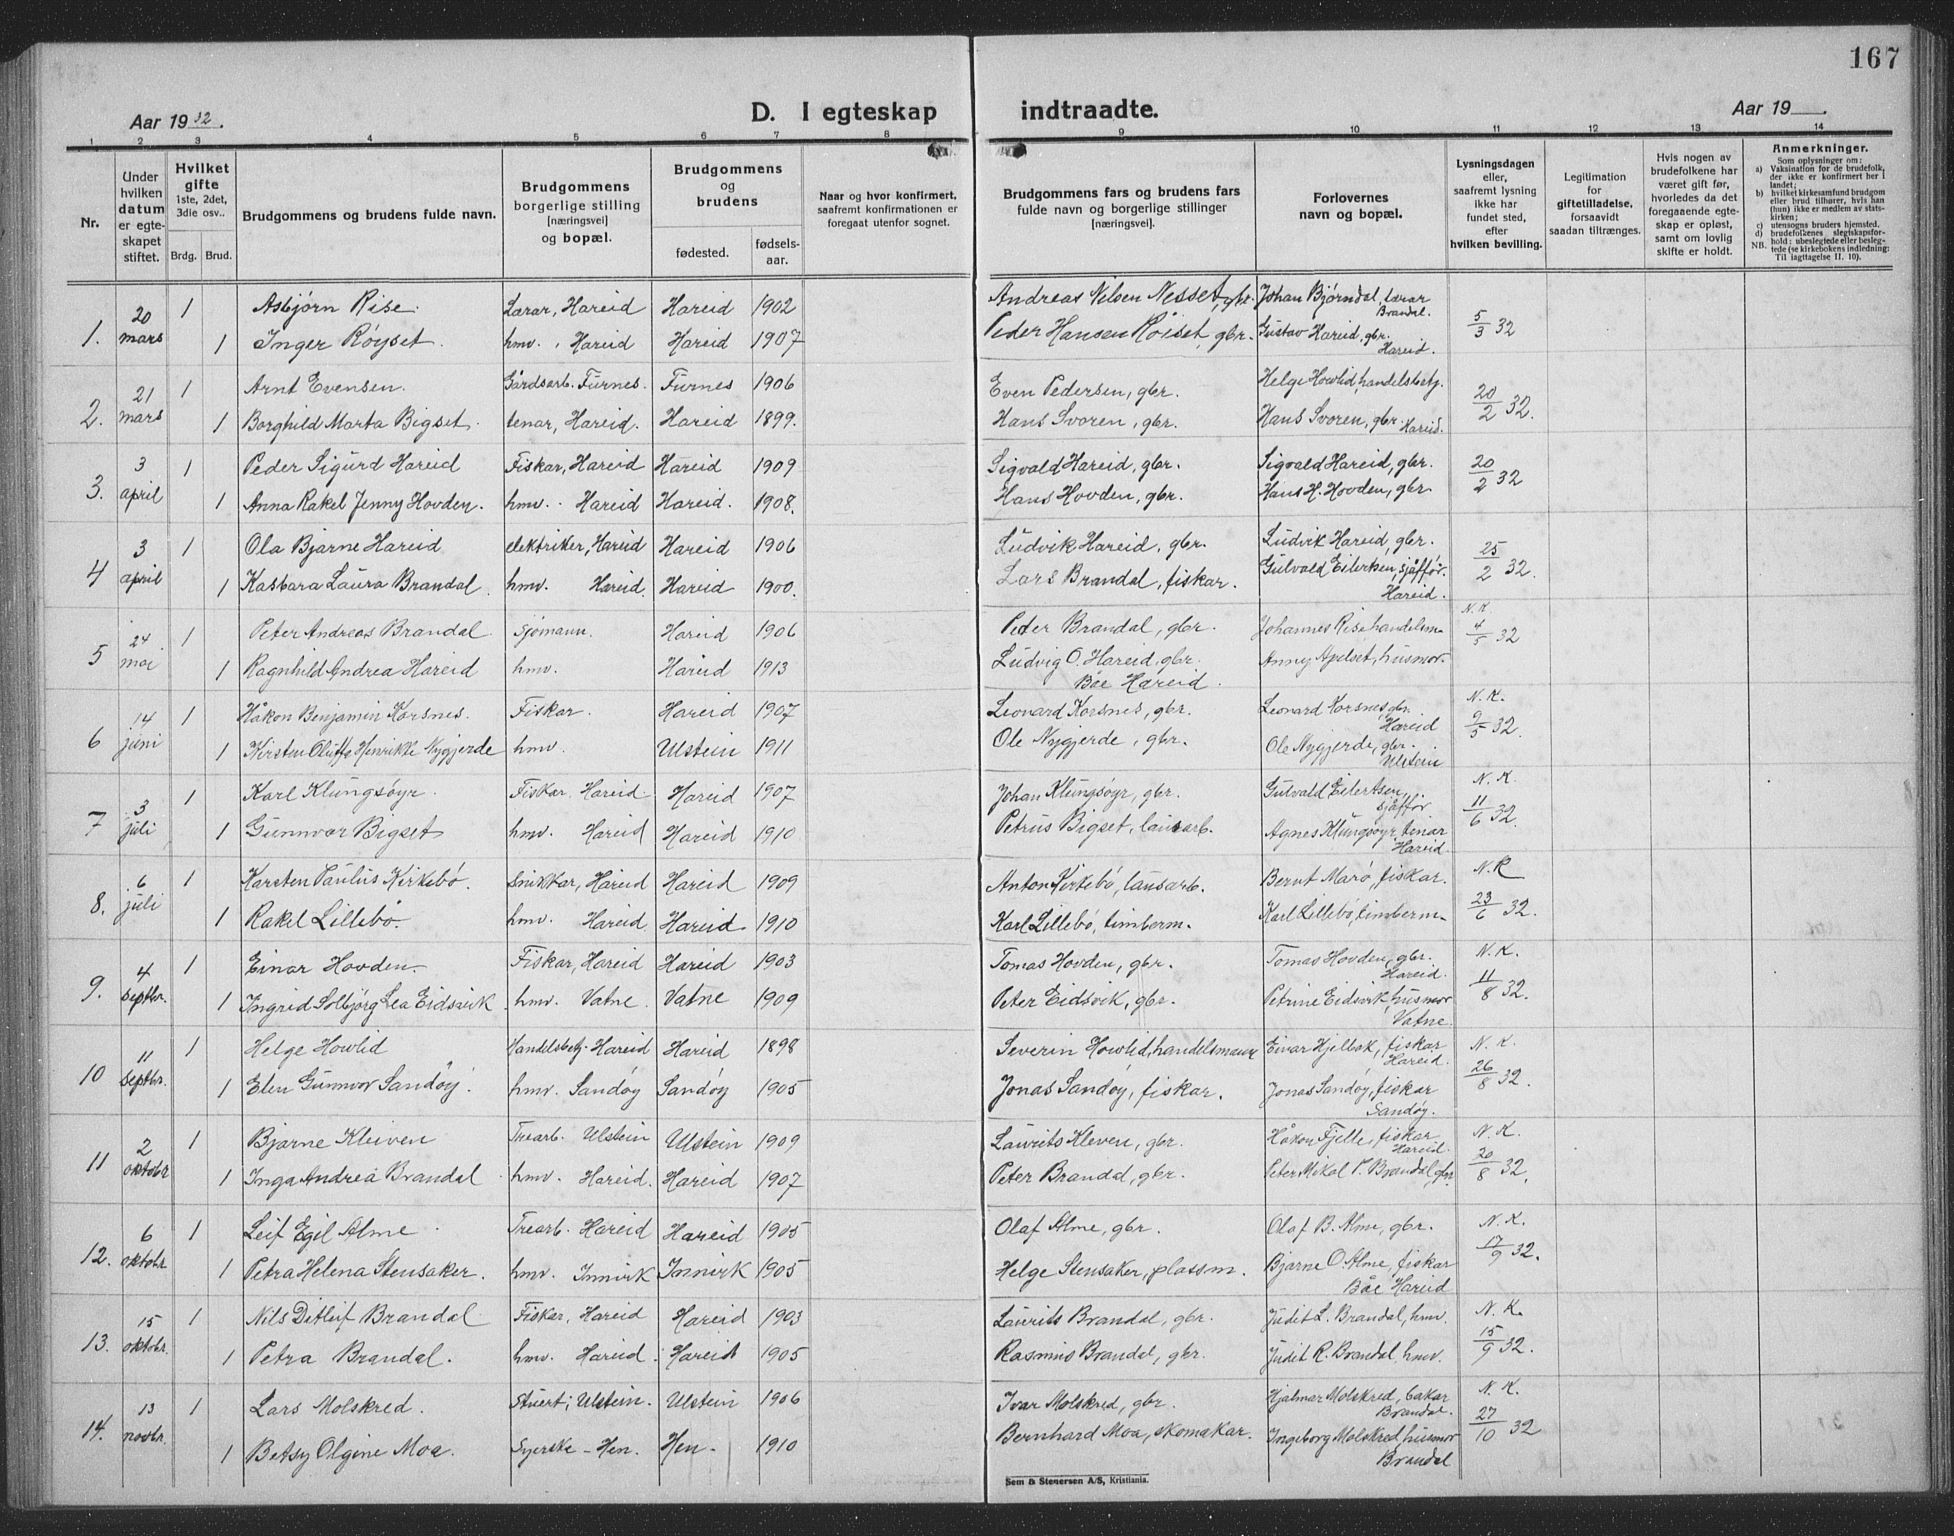 167
Aar 1932.
D. I egteskap indtraadte.
Aar 19 .
1 2 3 4 5 6 7 8 9 10 11 12 13 14
Nr.
Under hvilken datum er egteskapet stiftet.
Hvilket gifte 1ste, 2det, 3die osv..
Brdg. Brud.
Brudgommens og brudens fulde navn.
Brudgommens borgerlige stilling [næringsvei] og bopæl.
Brudgommens og brudens
fødested. fødselsaar.
Naar og hvor konfirmert, saafremt konfirmationen er foregaat utenfor sognet.
Brudgommens fars og brudens fars fulde navn og borgerlige stillinger [næringsvei].
Forlovernes navn og bopæl.
Lysningsdagen eller, saafremt lysning ikke har fundet sted, efter hvilken bevilling.
Legitimation for giftetilladelse, forsaavidt saadan tiltrænges.
Hvis nogen av brudefolkene har været gift før, hvorledes da det foregaaende egteskap er opløst, samt om lovlig skifte er holdt.
Anmerkninger.
Som oplysninger om:
a) Vaksination for de brudefolk, der ikke er konfirmert her i landet;
b) hvilket kirkesamfund brudgom eller brud tilhører, hvis han (hun) ikke er medlem av statskirken;
c) utensogns bruders hjemsted.
d) brudefolkenes slegtskapsforhold: ubeslegtede eller beslegtede (se kirkebokens indledning:
NB. Til iagttagelse II. 10).
1. 20 mars 1 Asbjørn Rise Lærar, Hareid Hareid 1902 Andreas Nilsen Nesset, gbr. Johan Bjørndal, lærar Brandal. 5/3 32
1 Inger Røyset. hmv., Hareid Hareid 1907 Peder Hansen Röiset, gbr. Gustav Hareid, gbr. Hareid.
2. 21 mars 1 Arnt Evensen. Gårdsarb. Furnes. Furnes 1906 Even Pedersen, gbr. Helge Howlid, handelsbetj. 20/2 32.
1 Borghild Marta Bigset. tenar, Hareid. Hareid 1899. Hans Svoren, gbr. Hans Svoren, gbr. Hareid.
3. 3 april 1 Peder Sigurd Hareid Fiskar, Hareid Hareid 1909 Sigvald Hareid, gbr. Sigvald Hareid, gbr. 20/2 32
1 Anna Rakel Jenny Hovden. hmv. Hareid Hareid. 1908. Hans Hovden, gbr. Hans H. Hovden, gbr
4 3 april 1 Ola Bjarne Hareid elektriker, Hareid Hareid 1906 Ludvik Hareid, gbr. Ludvik Hareid, gbr. 25/2 32.
1 Kasbara Laura Brandal. hmv. Hareid. Hareid 1900. Lars Brandal, fiskar. Gutvald Eilertsen, sjåffør. Hareid.
5 24 mai 1 Peter Andreas Brandal. Sjømann. Hareid 1906 Peder Brandal, gbr. Johannes Rise handelsm. N. K. 4/5 32
1 Ragnhild Andrea Hareid hmv. Hareid 1913 Ludvig O. Hareid, gbr. Böe Hareid. Anny Apelset, husmor.
6 14 juni 1 Håkon Benjamin Korsnes. Fiskar. Hareid 1907 Leonard Korsnes, gbr. Leonard Korsnes gbr. Hareid N. K. 9/5 32.
1 Kirsten Oluffa Henrikke Nygjerde hmv. Ulstein 1911 Ole Nygjerde, gbr. Ole Nygjerde, gbr. Ulstein
7 3 juli 1 Karl Klungsöyr. Fiskar, Hareid. Hareid 1907 Johan Klungsöyr, gbr. Gutvald Eilertsen, sjåffør N. K. 11/6 32.
1 Gunnvor Bigset hmv. Hareid Hareid 1910 Petrus Bigset, lausarb. Agnes Klungsöyr, tenar Hareid.
8. 6 juli 1 Karsten Paulus Kirkebö. Snikkar, Hareid Hareid 1909 Anton Kirkebö, lausarb. Bernt Marö, fiskar. N. K 23/6 32.
1 Rakel Lillebö. hmv. Hareid Hareid. 1910 Karl Lillebö, timberm. Karl Lillebö, timberm.
9. 4 septbr. 1 Einar Hovden. Fiskar, Hareid Hareid 1903 Tomas Hovden, gbr. Tomas Hovden, gbr. Hareid. N. K. 11/8 32.
1 Ingrid Solbjörg Lea Eidsvik hmv. Vatne. Vatne 1909 Peter Eidsvik, gbr. Petrine Eidsvik, husmor Vatne.
10 11 septbr. 1 Helge Howlid Handelsbetj. Hareid Hareid 1898 Severin Howlid, handelsmann Einar Hjelbak, fiskar Hareid. N. K. 26/8 32.
1 Elen Gunnvor Sandöy. hmv. Sandöy Sandöy 1905 Jonas Sandöy, fiskar. Jonas Sandöy, fiskar Sandöy.
11 2 oktobr 1 Bjarne Kleiven Trearb. Ulstein Ulstein 1909 Laurits Kleven, gbr. Håkon Fjelle, fiskar Hareid. N. K. 20/8 32.
1 Inga Andrea Brandal. hmv. Hareid. Hareid 1907 Peter Brandal, gbr. Peter Mikal P. Brandal, gbr.
12. 6 oktobr. 1 Leif Egil Alme Trearb. Hareid Hareid 1905 Olaf Alme, gbr. Olaf B. Alme, gbr. N. K. 17/9 32.
1 Petra Helena Stensaker. hmv. Innvik Innvik 1905 Helge Stensaker, plassm. Bjarne O. Alme, fiskar Böe Hareid
13. 15 oktobr. 1 Nils Ditleif Brandal Fiskar, Hareid Hareid 1903 Laurits Brandal, gbr. Judit L. Brandal, hmv. N. K. 15/9 32.
1 Petra Brandal. hmv. Hareid. Hareid 1905 Rasmus Brandal, gbr. Judit R. Brandal, hmv.
14. 13 novbr. 1 Lars Molskred. Stuert; Ulstein. Ulstein 1906 Ivar Molskred, gbr. Hjalmar Molskred, bakar Brandal. N. K. 27/10 32
1 Betsy Olgine Moa. Syerske - Hen. Hen. 1910 Bernhard Moa, skomakar. Ingeborg Molskred, husmor Brandal
Sem & Stenersen A/S, Kristiania.